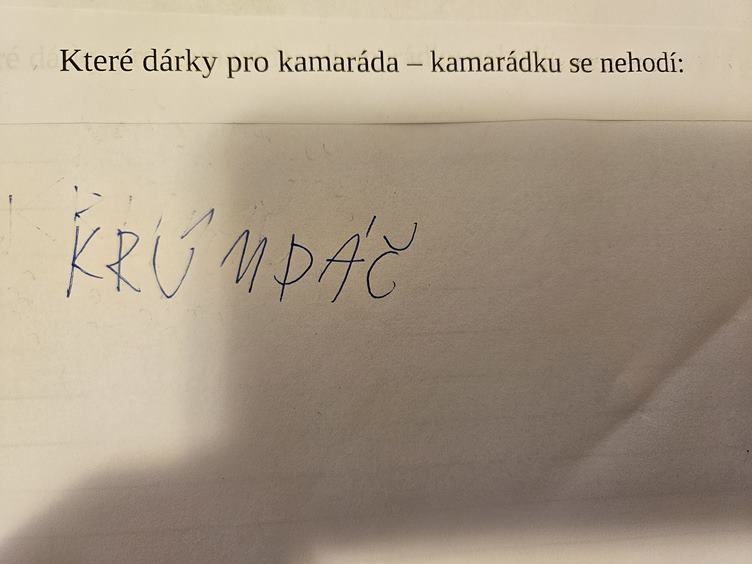 Které dárky pro kamaráda – kamarádku se nehodí:
KRÚMPÁČ